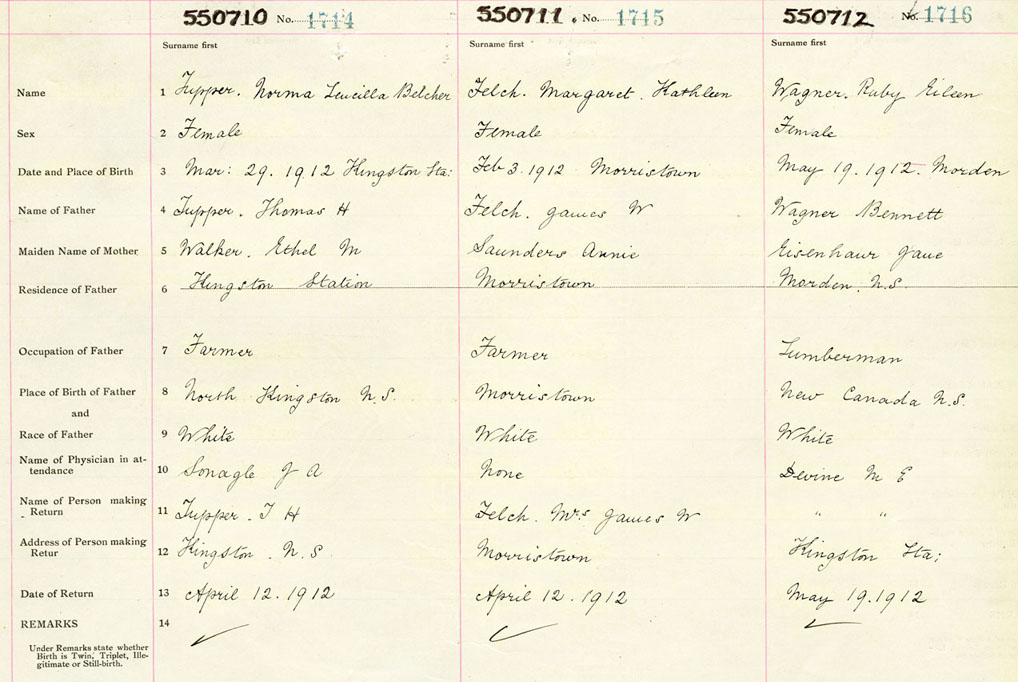 550710 No. 1714 550711 No. 1715 550712 No. 1716
Surname first Surname first Surname first
Name 1 Tupper. Norma Leucilla Belcher Felch. Margaret. Kathleen Wagner. Ruby Eileen
Sex 2 Female Female Female
Date and Place of Birth 3 Mar: 29. 1912 Kingston Sta: Feb 3. 1912 Morristown May 19. 1912. Morden
Name of Father 4 Tupper. Thomas H Felch. James W Wagner Bennett
Maiden Name of Mother 5 Walker. Ethel M Saunders Annie Eisenhaur Jane
Residence of Father 6 Kingston Station Morristown Morden. N.S.
Occupation of Father 7 Farmer Farmer Lumberman
Place of Birth of Father 8 North Kingston N.S. Morristown New Canada N.S.
and
Race of Father 9 White White White
Name of Physician in at-
tendance 10 Sonagle J A None Devine M E
Name of Person making
Return 11 Tupper. T H Felch. Mrs James W " "
Address of Person making
Retur 12 Kingston. N.S. Morristown Kingston Sta:
Date of Return 13 April 12. 1912 April 12. 1912 May 19. 1912
REMARKS 14
Under Remarks state whether
Birth is Twin, Triplet, Ille-
gitimate or Still-birth.